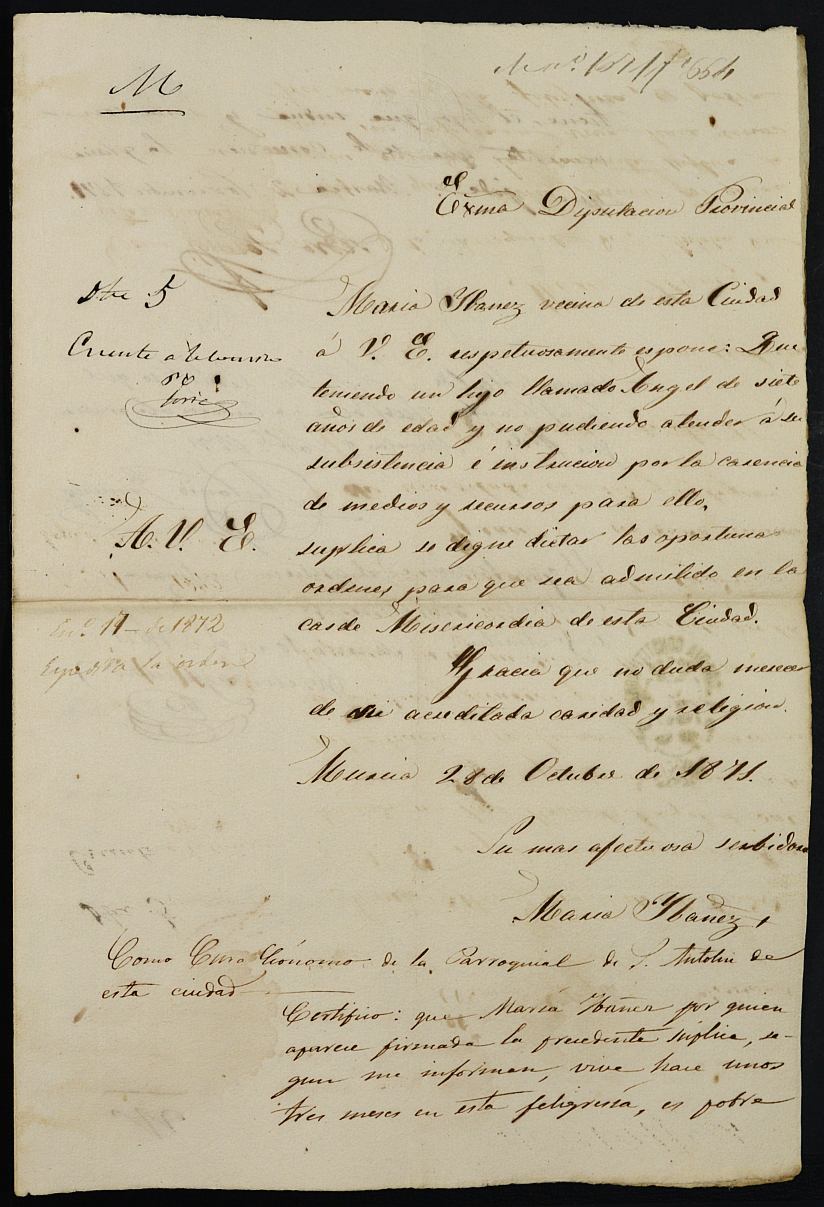 M
664
Exma Diputacion Provincial
Dbre 5
Cuente á
A. V. E.
En.º 17 - de 1872
la orden
Maria Ybanez vecina de esta Ciudad
á V. E. respetuosamente espone: Que
teniendo un hijo llamado Angel de siete
años de edad y no pudiendo atender á su
subsistencia é instrucion por la carencia
de medios y recursos para ello,
suplica se digne dictar las oportuna
ordenes para que sea admitido en la
casde Misericordia de esta Ciudad.
Gracia que no duda merecer
de su acreditada caridad y religion.
Murcia 28 de Octubre de 1871.
Su mas afectuosa serbidora
Maria Ybañez
Como Cura Ecónomo de la Parroquial de S. Antolin de
esta ciudad
Certifico: que María Ybañez por quien
aparece firmada la precedente súplica, se-
gun me informan, vive hace unos
tres meses en esta feligresía, es pobre